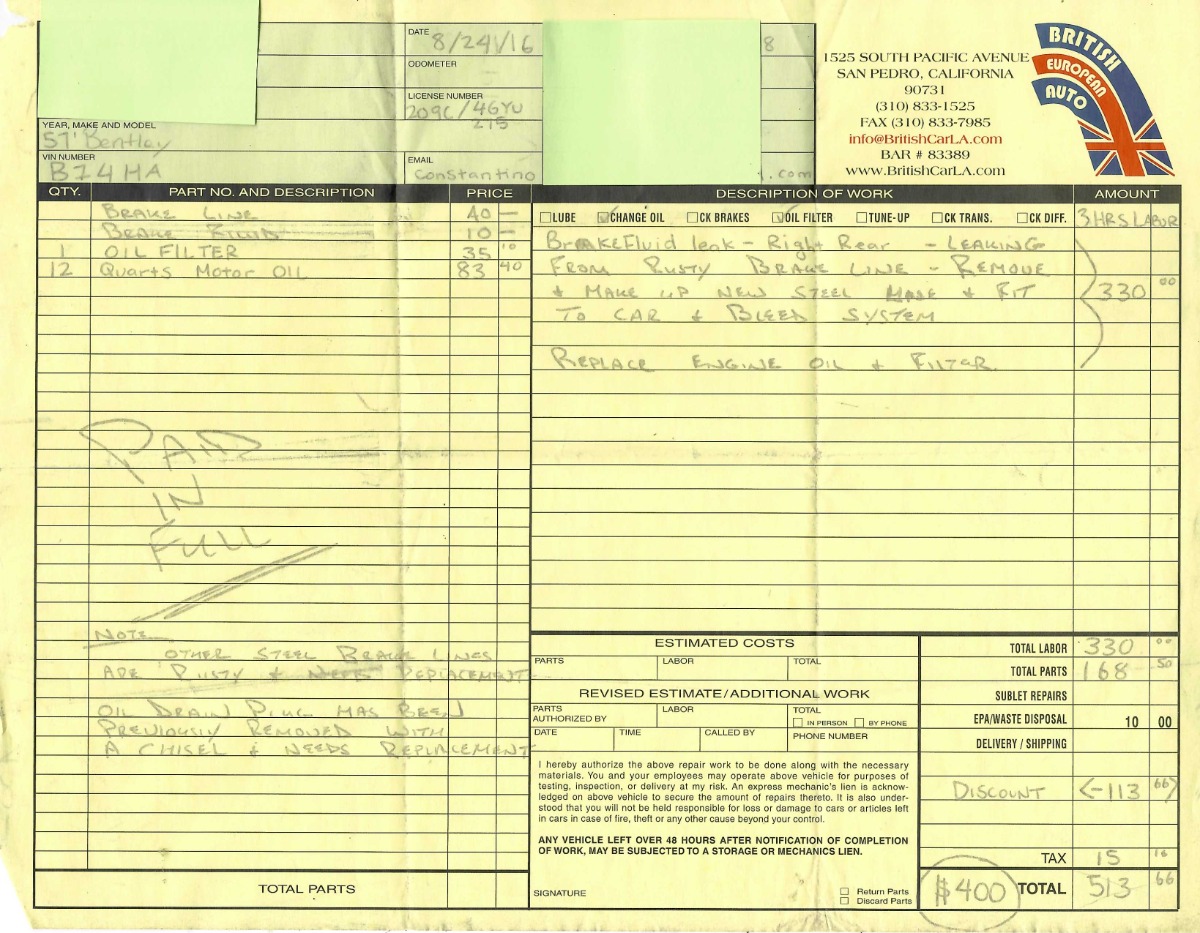 DATE 8/24/16
8
ODOMETER
LICENSE NUMBER
YEAR, MAKE AND MODEL
57' Bentley
VIN NUMBER
B14HA
EMAIL
Constantino
.com
1525 SOUTH PACIFIC AVENUE
SAN PEDRO, CALIFORNIA
90731
(310) 833-1525
FAX (310) 833-7985
info@BritishCarLA.com
BAR # 83389
www.BritishCarLA.com
BRITISH
EUROPEAN
AUTO
QTY. PART NO. AND DESCRIPTION PRICE
BRAKE LINE 40 —
BRAKE FLUID 10 —
1 OIL FILTER 35 10
12 Quarts Motor OIL 83 40
PAID
IN
FULL
NOTE
OTHER STEEL BRAKE LINES
ARE RUSTY & NEED REPLACEMENT
OIL DRAIN PLUG HAS BEEN
PREVIOUSLY REMOVED WITH
A CHISEL & NEEDS REPLACEMENT
TOTAL PARTS
DESCRIPTION OF WORK AMOUNT
LUBE CHANGE OIL CK BRAKES OIL FILTER TUNE-UP CK TRANS. CK DIFF. 3 HRS LABOR
BRAKE Fluid leak - Right Rear - LEAKING
FROM RUSTY BRAKE LINE - REMOVE
& MAKE UP NEW STEEL & FIT 330 00
TO CAR & BLEED SYSTEM
REPLACE ENGINE OIL & FILTER.
ESTIMATED COSTS
PARTS LABOR TOTAL
REVISED ESTIMATE/ADDITIONAL WORK
PARTS LABOR TOTAL
AUTHORIZED BY IN PERSON BY PHONE
DATE TIME CALLED BY PHONE NUMBER
I hereby authorize the above repair work to be done along with the necessary
materials. You and your employees may operate above vehicle for purposes of
testing, inspection, or delivery at my risk. An express mechanic's lien is acknow-
ledged on above vehicle to secure the amount of repairs thereto. It is also under-
stood that you will not be held responsible for loss or damage to cars or articles left
in cars in case of fire, theft or any other cause beyond your control.
ANY VEHICLE LEFT OVER 48 HOURS AFTER NOTIFICATION OF COMPLETION
OF WORK, MAY BE SUBJECTED TO A STORAGE OR MECHANICS LIEN.
SIGNATURE
Return Parts
Discard Parts
TOTAL LABOR 330 00
TOTAL PARTS 168 50
SUBLET REPAIRS
EPA/WASTE DISPOSAL 10 00
DELIVERY / SHIPPING
DISCOUNT <-113 66>
TAX 15 16
$400 TOTAL 513 66